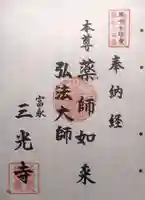 奉納経
本尊
薬師如来
弘法大師
富永
三光寺